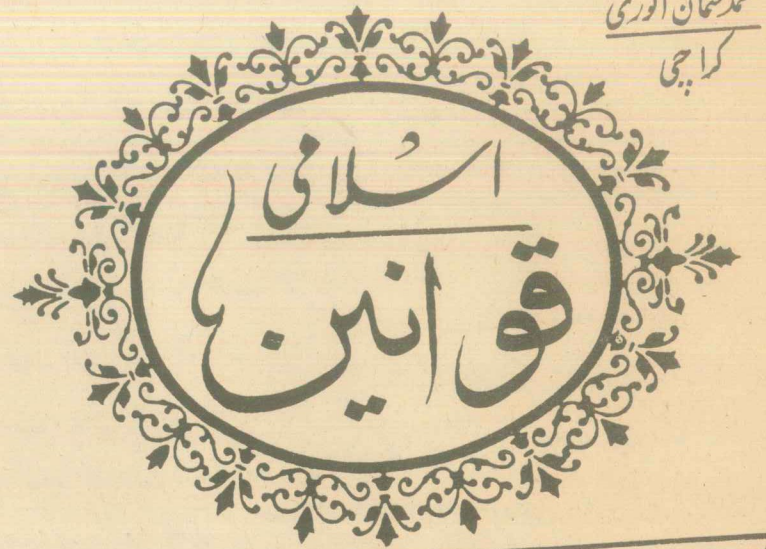 محمد عثمان انوری
کراچی
اسلامی
قوانین